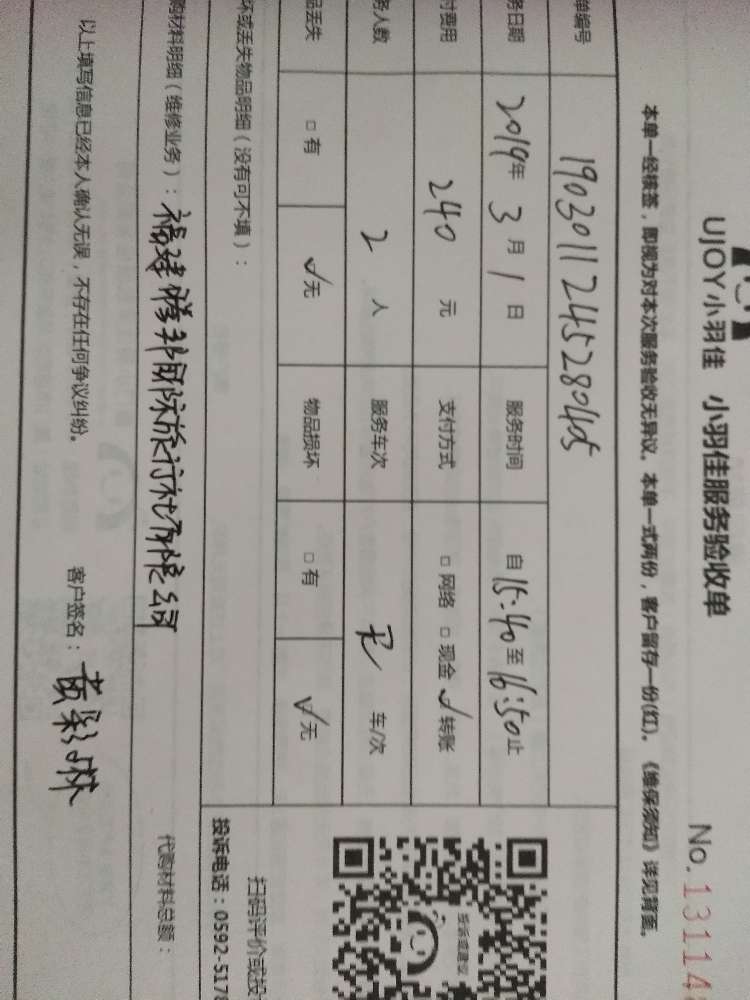 UJOY小羽佳 小羽佳服务验收单
No. 13114
本单一经核签，即视为对本次服务验收无异议。本单一式两份，客户留存一份(红)。《维保须知》详见背面。
单编号 190301124528045
务日期 2019年3月1日 服务时间 自15:40至16:50止
付费用 240元 支付方式 □网络 □现金 ✓转账
务人数 2人 服务车次 无 车/次
品丢失 □有 ✓无 物品损坏 □有 ✓无
坏或丢失物品明细（没有可不填）：
投诉或建议
扫码评价或投
投诉电话：0592-5178
购材料明细（维修业务）：福建修邦国际旅行社有限公司 代购材料总额：
以上填写信息已经本人确认无误，不存在任何争议纠纷。 客户签名：黄彩琳